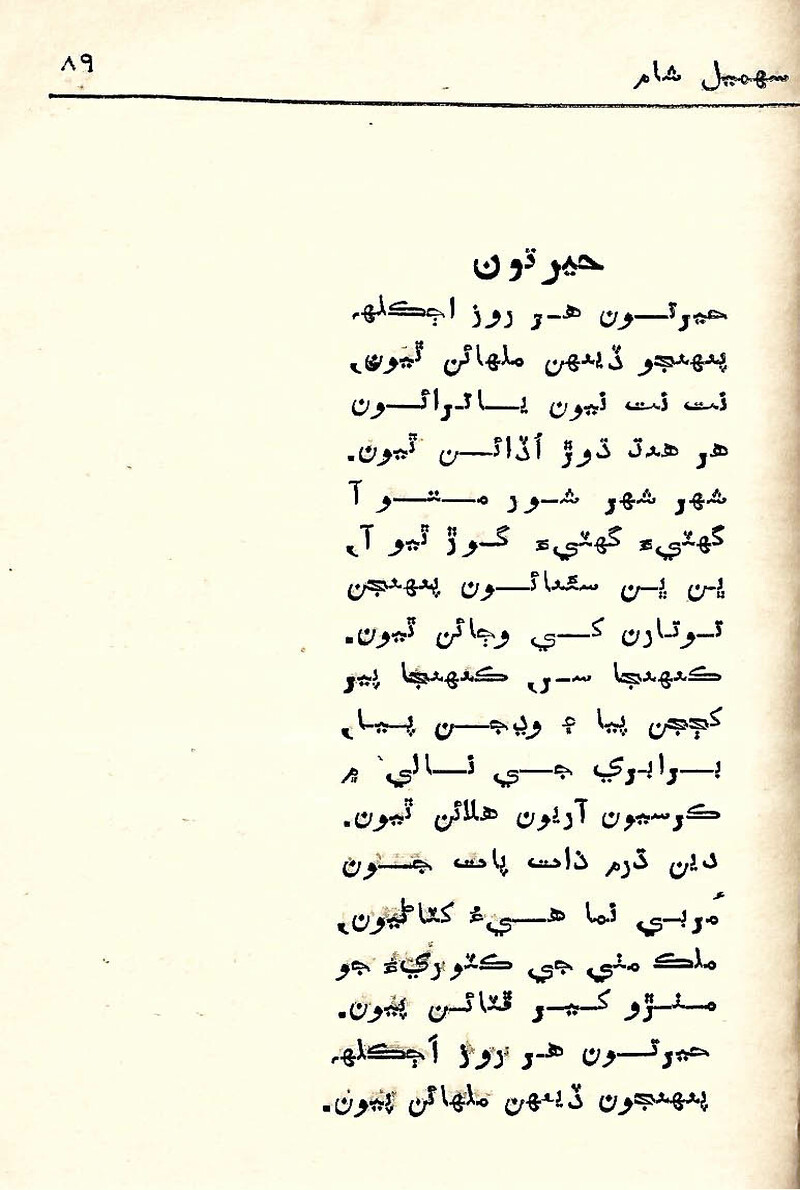 سھميل شام ۸۹
حيرتون
حيرتون هر روز اڄڪلهه
پنهنجو ڏينهن ملهائن ٿيون،
نت نت نيون ياترائون
هر هنڌ ڌوڙ اُڏائن ٿيون.
شهر شهر شور متو آ
گهٽيءَ گهٽيءَ گوڙ ٿيو آ،
ڀن ڀن سڻڀائون پنهنجن
توتارن کي وڄائن ٿيون.
ڪنهنجا سر، ڪنهنجا پير
کڄن پيا ۽ وڍجن پيا،
برابري جي نالي ۾
ڪرسيون آريون هلائن ٿيون.
دين ڌرم ذات پات جون
مُربي نما هيءُ کٽاڻيون،
ملڪ مٽي جي ڪٽوريءَ جو
مٺڙو کير ڦٽائن پيون.
حيرتون هر روز اَڄڪلهه
پنهنجون ڏينهن ملهائن پيون.